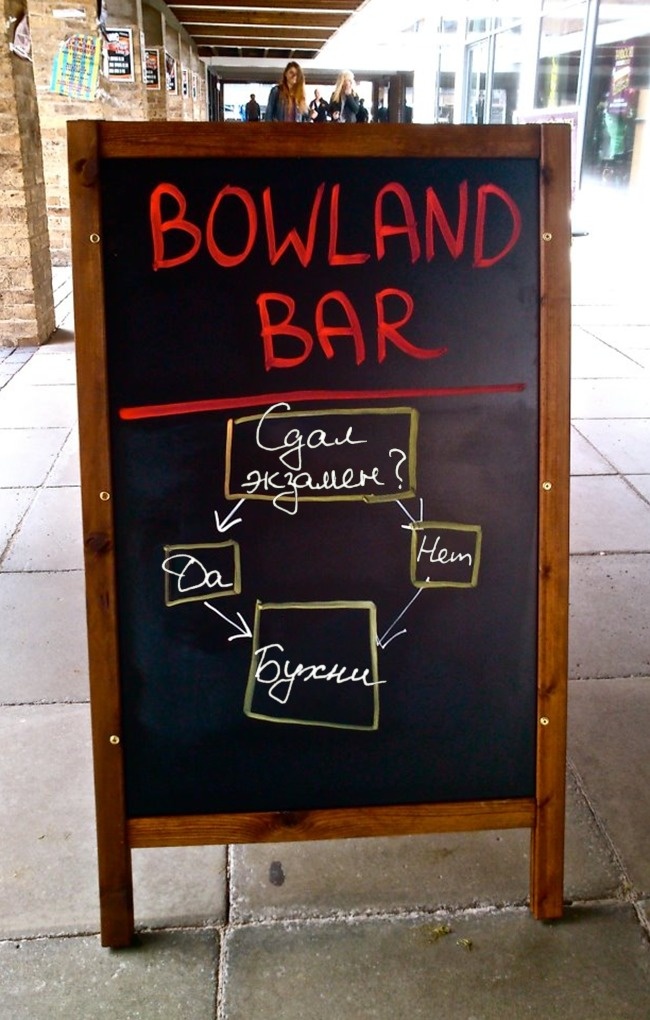 BOWLAND
BAR
Сдал
экзамен?
Да
Нет
Бухни